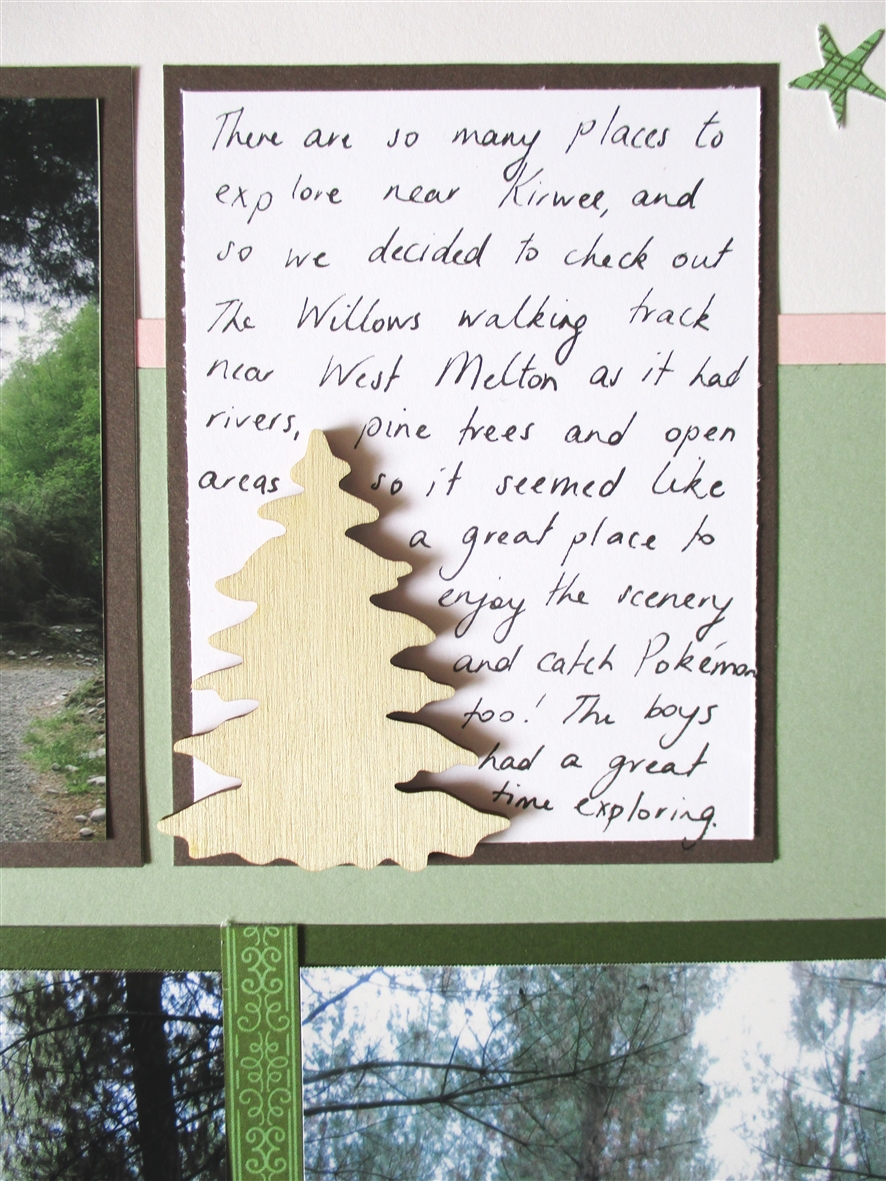 There are so many places to
explore near Kirwee, and
so we decided to check out
The Willows walking track
near West Melton as it had
rivers, pine trees and open
areas so it seemed like
a great place to
enjoy the scenery
and catch Pokémon
too! The boys
had a great
time exploring.